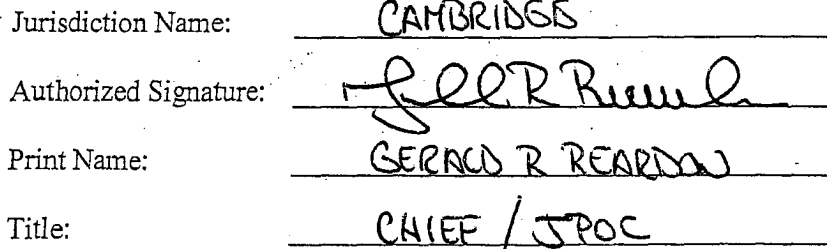 Jurisdiction Name: CAMBRIDGE
Authorized Signature:
Print Name: GERALD R REARDON
Title: CHIEF / JPOC